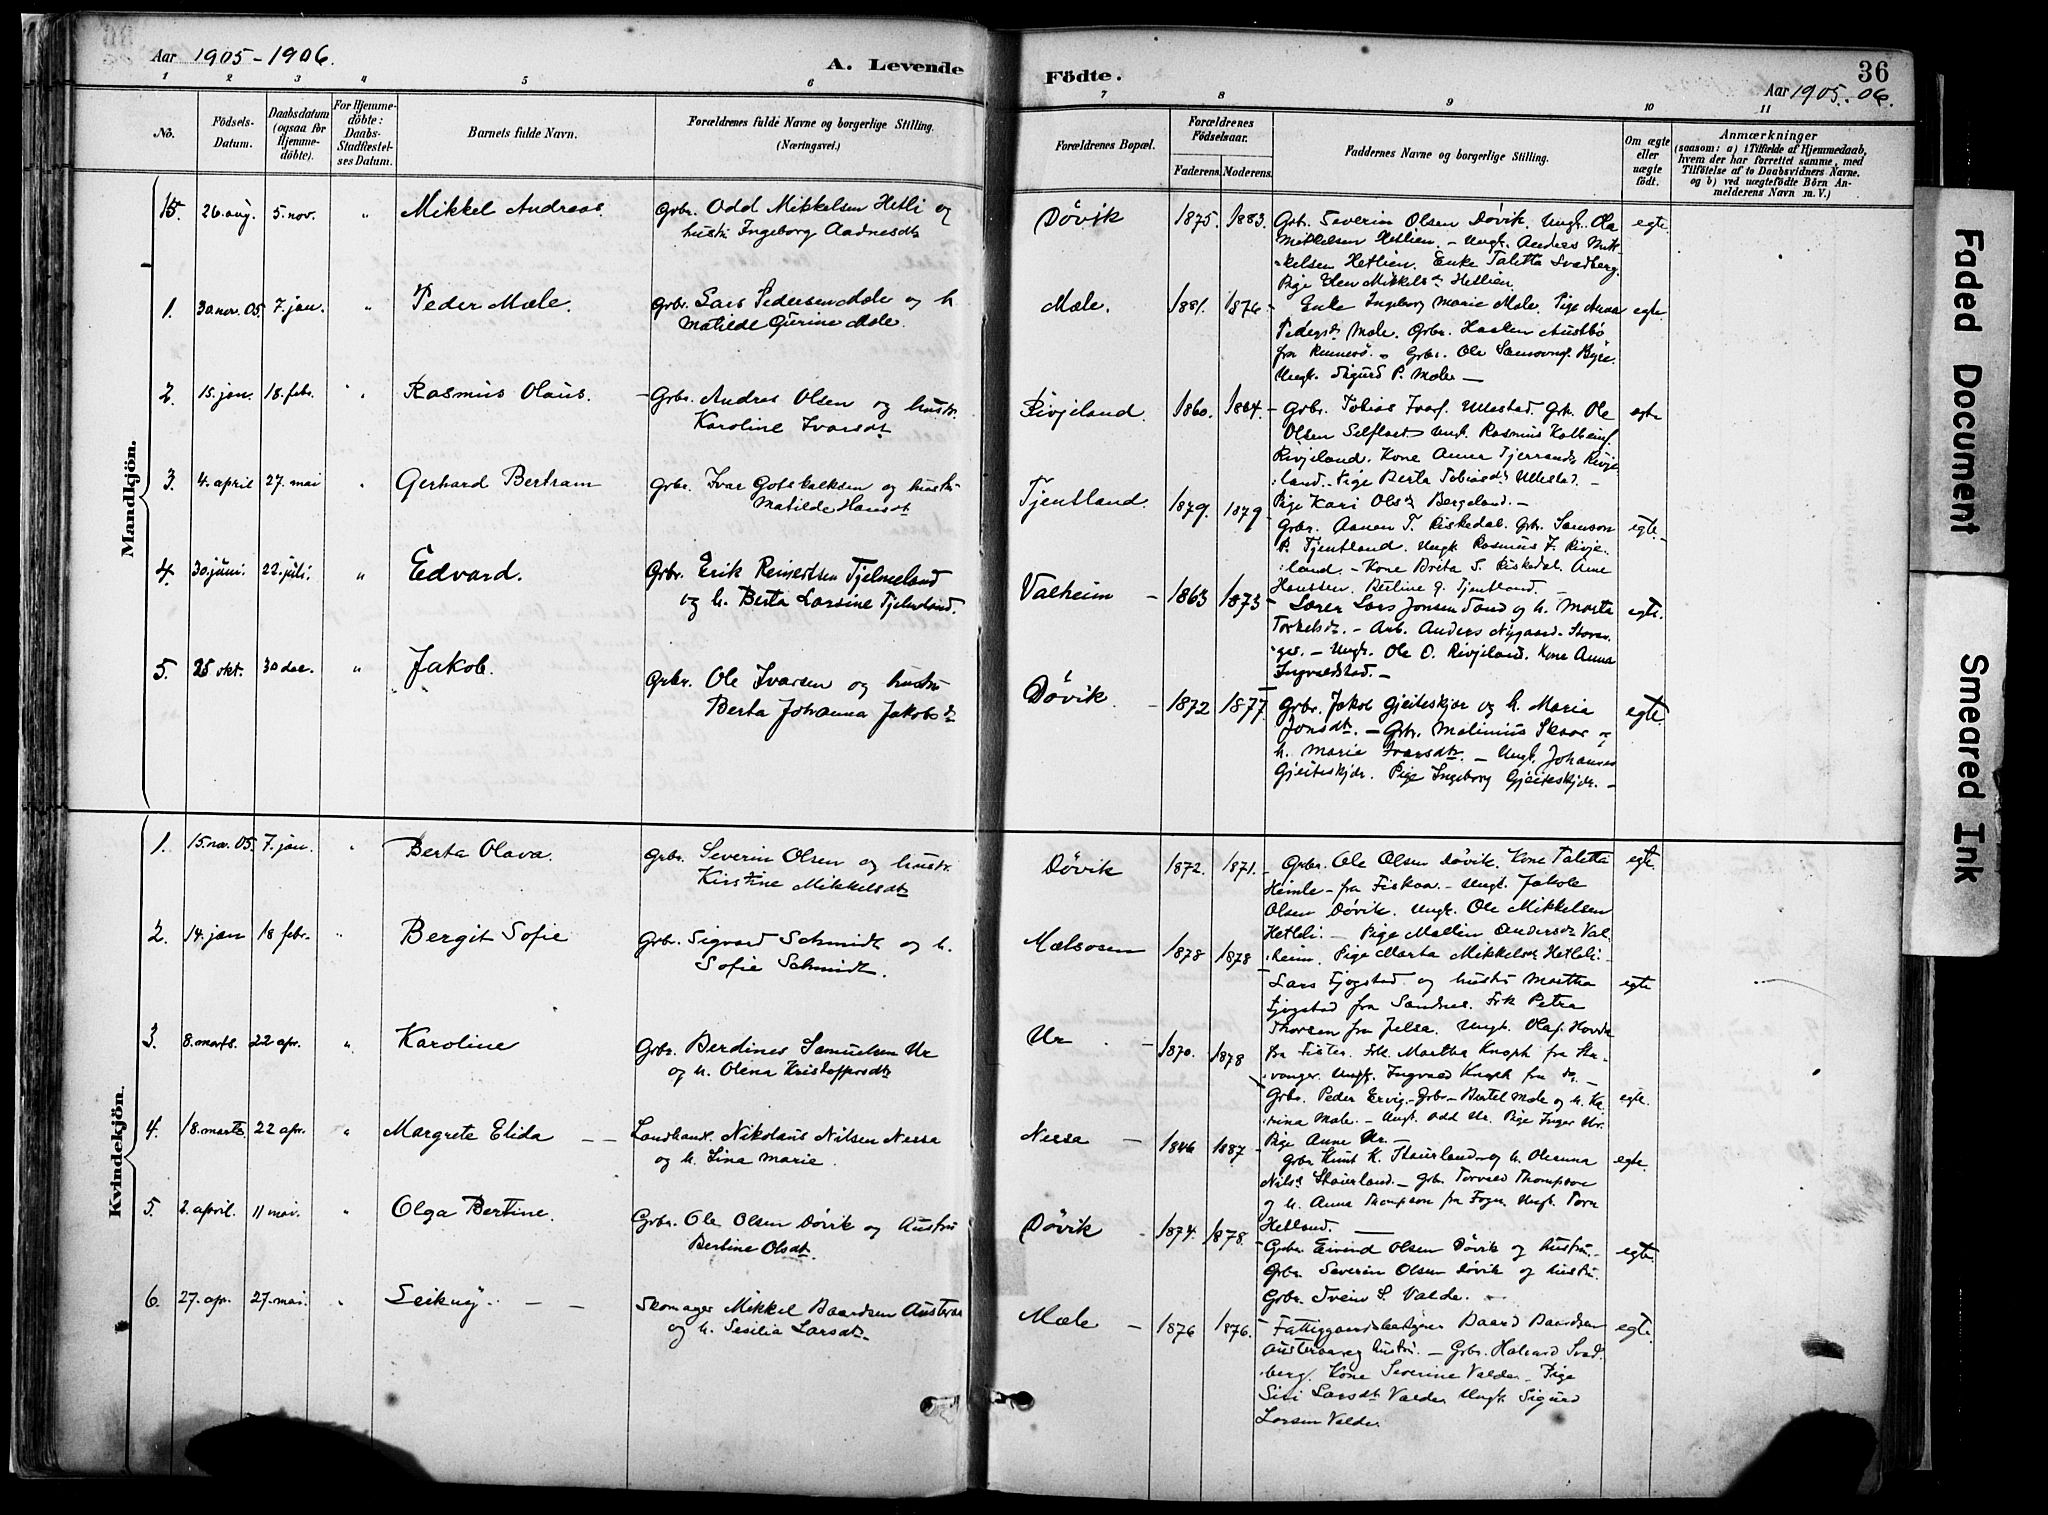 Aar 1905-1906.
A. Levende
Födte.
36
Aar 1905.-06.
1 2 3 4 5 6 7 8 9 10 11
No.
Födsels-
Datum.
Daabsdatum
(ogsaa for
Hjemme-
döbte).
For Hjemme-
döbte:
Daabs-
Stadfæstel-
ses Datum.
Barnets fulde Navn.
Forældrenes fulde Navne og borgerlige Stilling.
(Næringsvei.)
Forældrenes Bopæl.
Forældrenes
Födselsaar.
Faderens. Moderens.
Faddernes Navne og borgerlige Stilling.
Om ægte
eller
uægte
födt.
Anmærkninger
(saasom: a) i Tilfælde af Hjemmedaab,
hvem der har forrettet samme, med
Tilföielse af to Daabsvidners Navne.
og b) ved uægtefödte Börn An-
melderens Navn m. V.)
Mandkjön.
15. 26. aug. 5. nov. " Mikkel Andreas. Grbr. Odd Mikkelsen Hetli og
hustr. Ingeborg Aadnesdtr
Dövik 1875. 1883. Grbr. Severin Olsen Dövik. Ungk. Ola egte
Mikkelsen Hetlien. - Ungk. Anders Mik-
kelsen Hetlien. Enke Taletta Svadberg.
Pige Elen Mikkelsdr Hetlien.
1. 30. nov. 05. 7. jan. " Peder Mæle. Grbr. Lars Pedersen Mæle og h.
Matilde Gurine Mæle.
Mæle. 1881. 1876 - Enke Ingeborg Marie Mæle. Pige Anna egte.
Pedersdr Mæle. Grbr. Haaken Austbö
fra Rennesö. Grbr. Ole
Ungk. Sigurd P. Mæle -
2. 15. jan. 18. febr. " Rasmus Olaus. Grbr. Andreas Olsen og hustr.
Karoline Ivarsdtr
Rivjeland. 1860. 1864 - Grbr. Tobias Ivars. Ullestad. Grbr. Ole egte
Olsen Selflaet Ungk. Rasmus
Rivjeland. Kone Anna Tjerrandsdr Rivje-
land. Pige Berta Tobiasdr Ullestad. -
Pige Kari Olsdr Bergeland. -
3. 4. april 27. mai " Gerhard Bertram Grbr. Ivar Gotskalksen og hustr.
Matilde Hansdtr
Tjentland. 1879. 1879 - Grbr. Aanen T. Riskedal. Grbr. Samson egte. -
P. Tjentland. Ungk Rasmus J. Rivje-
land. - Kone Brita S. Riskedal. Ane
Hanssen. Berline G. Tjentland. -
4. 30. juni. 22. juli. " Edvard. Grbr. Erik Reinertsen Tjelmeland
og h. Berta Larsine Tjelmeland.
Valheim - 1863 1873 - Lærer Lars Jonsen Sand og h. Marta egte.
Torkelsdr. - Arb. Anders Nygaard - Stavan-
ger. - Ungk. Ole O. Rivjeland. Kone Anna
Ingvaldstad. -
5. 25 okt. 30 dec. " Jakob. Grbr. Ole Ivarsen og hustru
Berta Johanna Jakobsdr
Dövik. - 1872 1877. Grbr. Jakob Gjeiteskjær og h. Maria egte.
Jonsdtr. - Grbr. Malinius Skaar og
h. Marie Ivarsdtr. - Ungk. Johannes
Gjeiteskjær. Pige Ingeborg Gjeiteskjær. -
Kvindekjön.
1. 15. nov. 05. 7. jan. " Berta Olava. Grbr. Severin Olsen og hustr.
Kirstine Mikkelsdtr
Dövik 1872. 1871. - Grbr. Ole Olsen Dövik. Kone Taletta egte.
Heimle - fra Fiskaa. - Ungk. Jakob
Olsen Dövik. Ungk. Ole Mikkelsen
Hetleli. - Pige Mallin Andersdr Val-
heim. Pige Marta Mikkelsdr Hetleli -
2. 14. jan 18 febr. " Bergit Sofie Grbr. Sigvard Schmidt og h.
Sofie Schmidt.
Mælsosen 1878 1878 - Lars Fjogstad og hustr. Martha egte
Fjogstad fra Sandnes. Frk Petra
Thorsen fra Jelsa. Ungk. Olaf Hovda
fra Fister. Frk. Martha Knoph fra Sta-
vanger. Ungk. Ingvald Knoph fra do. -
3. 8. marts. 22 apr. " Karoline Grbr. Berdines Samuelsen Ur
og h. Olena Kristoffersdtr
Ur - 1870. 1878 Grbr. Peder Ervig. - Grbr. Bertel Mæle og h. Ka- egte.
rina Mæle. - Ungk. Odd Ur. Pige Inger Ur.
Pige Anne Ur. -
4. 18. marts 22 apr. " Margrete Elida - - Landhandl. Nikolaus Nilsen Nessa
og h. Lina Marie.
Nessa - 1846 1887 - Grbr Knut K. Skeierland og h. Oleanna egte.
Nilsdr Skeierland. - Grbr. Torvald Thompson
og h. Anna Thompson fra Fogn. Ungk. Tora
Hetland. -
5. 2. april. 11 mai. " Olga Bertine. Grbr. Ole Olsen Dövik og hustru
Bertine Olsdtr.
Dövik - 1874. 1878. - Grbr. Eivind Olsen Dövik og hustru. - egte.
Grbr. Severin Olsen Dövik og hustru.
Grbr. Svein S. Valde. -
6. 27. apr. 27. mai. " Leikny. - - Skomager Mikkel Baardsen Austeraa
og h. Sesilia Larsdtr.
Mæle - 1876 1876. - Fattiggaardsbestyrer Baard Baardsen egte.
Austeraa og hustru. - Grbr. Halvard Svad-
berg. Kone Severine Valde. - Pige
Siri Larsdtr Valde. Ungk. Sigurd
Larsen Valde.
Faded Document
Smeared Ink